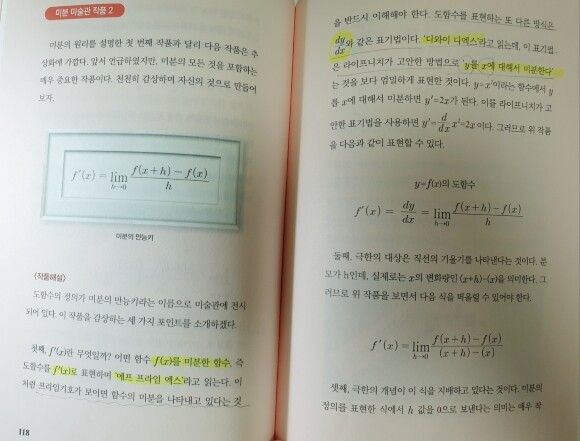 미분 미술관 작품 2
미분의 원리를 설명한 첫 번째 작품과 달리 다음 작품은 추
상화에 가깝다. 앞서 언급하였지만, 미분의 모든 것을 포함하는
매우 중요한 작품이다. 천천히 감상하며 자신의 것으로 만들어
보자.
f′(x) = lim h→0 f(x+h) − f(x) / h
미분의 만능키
〈작품해설〉
도함수의 정의가 미분의 만능키라는 이름으로 미술관에 전시
되어 있다. 이 작품을 감상하는 세 가지 포인트를 소개하겠다.
첫째, f′(x)란 무엇일까? 어떤 함수 f(x)를 미분한 함수, 즉
도함수를 f′(x)로 표현하며 '에프 프라임 엑스'라고 읽는다. 이
처럼 프라임기호가 보이면 함수의 미분을 나타내고 있다는 것
118
을 반드시 이해해야 한다. 도함수를 표현하는 또 다른 방식은
dy/dx와 같은 표기법이다. '디와이 디엑스'라고 읽는데, 이 표기법
은 라이프니치가 고안한 방법으로 'y를 x에 대해서 미분한다'
는 것을 보다 엄밀하게 표현한 것이다. y=x²이라는 함수에서 y
를 x에 대해서 미분하면 y′=2x가 된다. 이를 라이프니치가 고
안한 표기법을 사용하면 y′= d/dx x²=2x이다. 그러므로 위 작품
을 다음과 같이 표현할 수 있다.
y=f(x)의 도함수
f′(x) = dy/dx = lim h→0 f(x+h)−f(x) / h
둘째, 극한의 대상은 직선의 기울기를 나타낸다는 것이다. 분
모가 h인데, 실제로는 x의 변화량인 (x+h)-(x)을 의미한다. 그
러므로 위 작품을 보면서 다음 식을 떠올릴 수 있어야 한다.
f′(x) = lim h→0 f(x+h)−f(x) / (x+h)−(x)
셋째, 극한의 개념이 이 식을 지배하고 있다는 것이다. 미분의
정의를 표현한 식에서 h 값을 0으로 보낸다는 의미는 매우 작